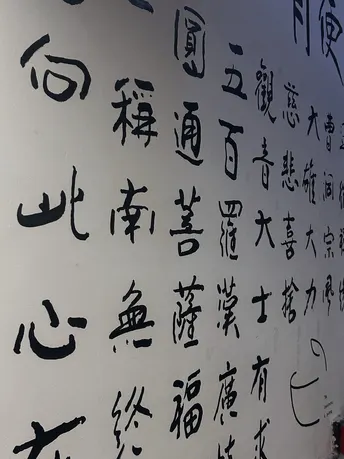 便
曹洞宗
大雄大力
慈悲喜捨
觀音大士有求
五百羅漢廣
圓通菩薩福
稱南無終
向此心在